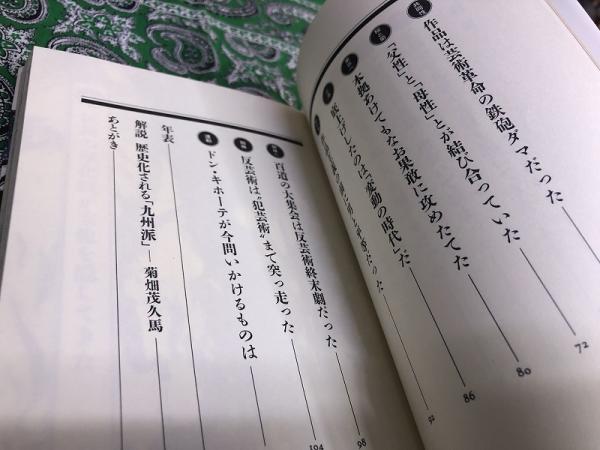 作品は芸術革命の鉄砲ダマだった 72
「父性」と「母性」とが結び合っていた 80
本拠あけてもなお果敢に攻めたてた 86
底上げしたのは、「変動の時代」だ 92
百道の大集会は反芸術終末劇だった 98
反芸術は“犯芸術”まで突っ走った 104
ドン・キホーテが今問いかけるものは
年表
解説 歴史化される「九州派」― 菊畑茂久馬
あとがき